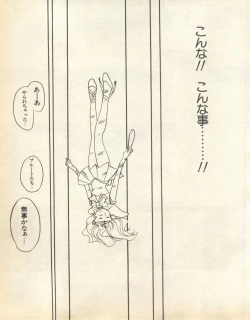 こんな!! こんな事………!!
あーあ
やられちゃった…
ブルートたち…
無事かなぁ…